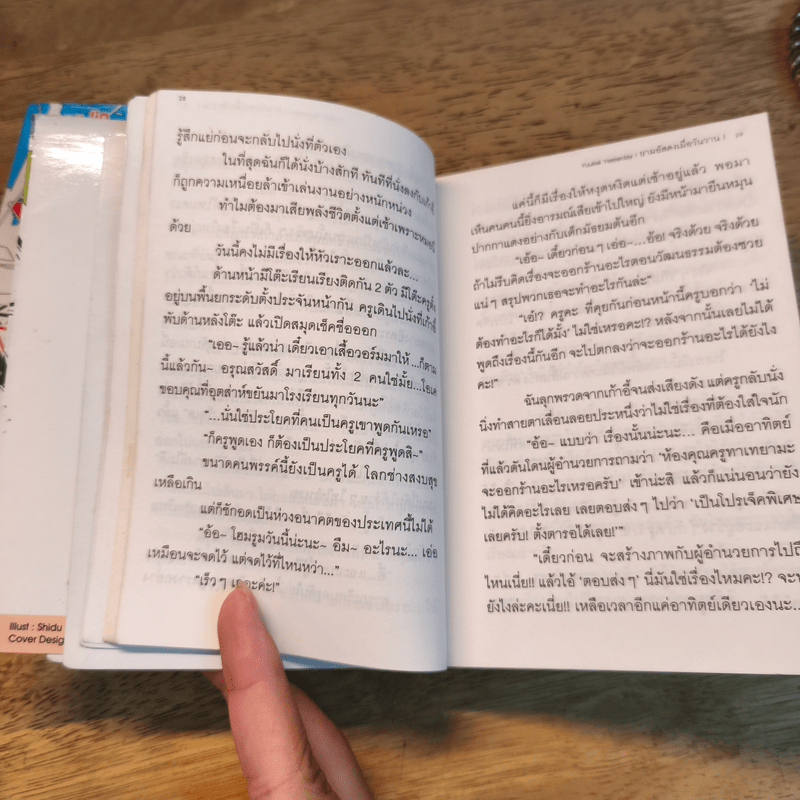 28
รู้สึกแย่ก่อนจะกลับไปนั่งที่ตัวเอง
ในที่สุดฉันก็ได้นั่งบ้างสักที ทันทีที่นั่งลงกับเก้าอี้
ก็ถูกความเหนื่อยล้าเข้าเล่นงานอย่างหนักหน่วง
ทำไมต้องมาเสียพลังชีวิตตั้งแต่เช้าเพราะ
ด้วย
วันนี้คงไม่มีเรื่องให้หัวเราะออกแล้วละ...
ด้านหน้ามีโต๊ะเรียนเรียงติดกัน 2 ตัว มีโต๊ะครูตั้ง
อยู่บนพื้นยกระดับตั้งประจันหน้ากัน ครูเดินไปนั่งที่เก้าอี้
พับด้านหลังโต๊ะ แล้วเปิดสมุดเช็คชื่อออก
“เออ~ รู้แล้วน่า เดี๋ยวเอาเสื้อวอร์มมาให้ ...ก็ตาม
นี้แล้วกัน~ อรุณสวัสดิ์ มาเรียนทั้ง 2 คนใช่มั้ย...โอเค
ขอบคุณที่อุตส่าห์ขยันมาโรงเรียนทุกวันนะ”
“...นั่นใช่ประโยคที่คนเป็นครูเขาพูดกันเหรอ”
“ก็ครูพูดเอง ก็ต้องเป็นประโยคที่ครูพูดสิ~”
ขนาดคนพรรค์นี้ยังเป็นครูได้ โลกช่างสงบสุข
เหลือเกิน
แต่ก็ชักอดเป็นห่วงอนาคตของประเทศนี้ไม่ได้
“อ้อ~ โฮมรูมวันนี้น่ะนะ~ อืม~ อะไรนะ... เอ่อ
เหมือนจะจดไว้ แต่จดไว้ที่ไหนหว่า...”
“เร็วๆ เถอะค่ะ!”
Illust : Shidu
Cover Desig
YUUKEI YESTERDAY ยามอัสดงเมื่อวันวาน 1 29
แค่นี้ก็มีเรื่องให้หงุดหงิดแต่เช้าอยู่แล้ว พอมา
เห็นคนคนนี้ยิ่งอารมณ์เสียเข้าไปใหญ่ ยังมีหน้ามายืนหมุน
ปากกาแดงอย่างกับเด็กมัธยมต้นอีก
“เอ้อ~ เดี๋ยวก่อนๆ เอ่อ~...อ้อ! จริงด้วย จริงด้วย
ถ้าไม่รีบคิดเรื่องจะออกร้านอะไรตอนวัฒนธรรมต้องซวย
แน่ๆ สรุปพวกเธอจะทำอะไรกันล่ะ”
“เอ๋!? ครูคะ ที่คุยกันก่อนหน้านี้ครูบอกว่า ‘ไม่
ต้องทำอะไรก็ได้มั้ง’ ไม่ใช่เหรอคะ!? หลังจากนั้นเลยไม่ได้
พูดถึงเรื่องนี้กันอีก จะไปตกลงว่าจะออกร้านอะไรได้ยังไง
คะ!”
ฉันลุกพรวดจากเก้าอี้จนส่งเสียงดัง แต่ครูกลับนั่ง
นิ่งทำสายตาเลื่อนลอยประหนึ่งว่าไม่ใช่เรื่องที่ต้องใส่ใจนัก
“อ้อ~ แบบว่า เรื่องนั้นน่ะนะ... คือเมื่ออาทิตย์
ที่แล้วดันโดนผู้อำนวยการถามว่า ‘ห้องคุณครูทาเทยามะ
จะออกร้านอะไรเหรอครับ’ เข้าน่ะสิ แล้วก็แน่นอนว่ายัง
ไม่ได้คิดอะไรเลย เลยตอบส่งๆ ไปว่า ‘เป็นโปรเจ็คพิเศษ
เลยครับ! ตั้งตารอได้เลย!’”
“เดี๋ยวก่อน จะสร้างภาพกับผู้อำนวยการไปถึ
ไหนเนี่ย!! แล้วไอ้ ‘ตอบส่งๆ’ นี่มันใช่เรื่องไหมคะ!? จะท
ยังไงล่ะคะเนี่ย!! เหลือเวลาอีกแค่อาทิตย์เดียวเองนะ...